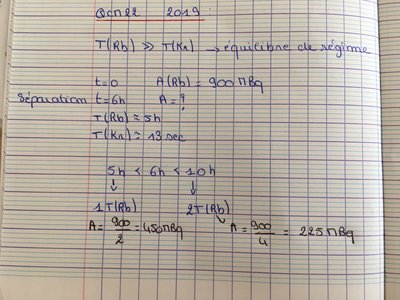 QCM 22 2019
T(Rb) >> T(Kr) → équilibre de régime
t=0 A(Rb) = 900 MBq
Séparation t=6h A=?
T(Rb) ≈ 5h
T(Kr) ≈ 13 sec
5h < 6h < 10h
↓ ↓
1T(Rb) 2T(Rb)
A= 900/2 = 450 MBq A = 900/4 = 225 MBq